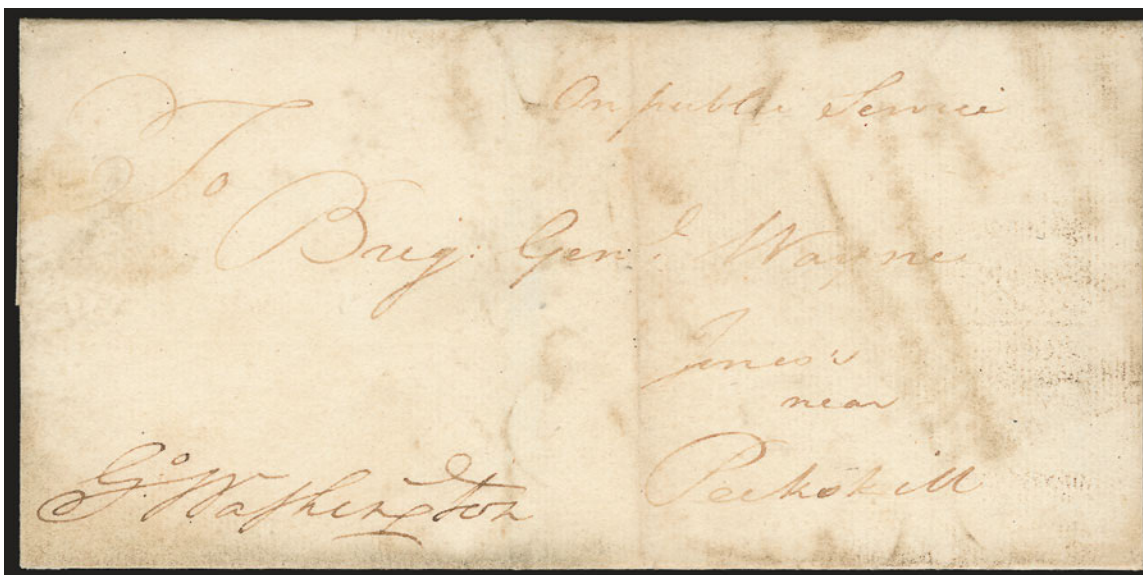 On public Service
To
Brig: Genl. Wayne
Jones's
near
Peekskill
Go Washington